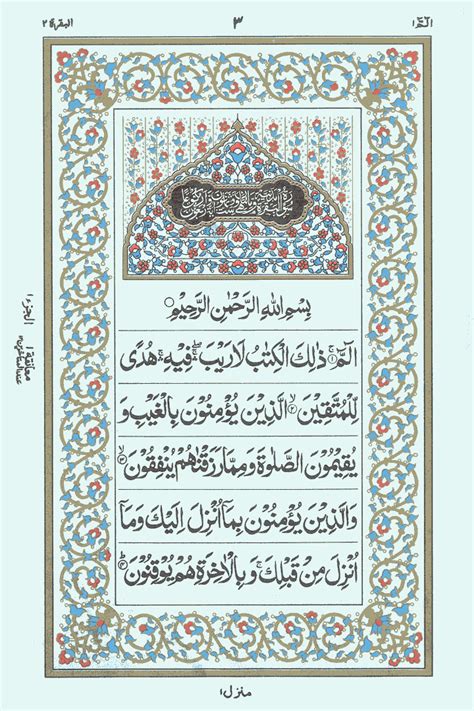 الٓمّٓ ۱
۳
البقرة ۲
بِسْمِ اللهِ الرَّحْمٰنِ الرَّحِيْمِ ○
الٓمّٓ ۚ۝۱ ذٰلِكَ الْكِتٰبُ لَا رَيْبَ ۛۖ فِيْهِ ۛۚ هُدًى
لِّلْمُتَّقِيْنَ ۙ۝۲ الَّذِيْنَ يُؤْمِنُوْنَ بِالْغَيْبِ وَ
يُقِيْمُوْنَ الصَّلٰوةَ وَمِمَّا رَزَقْنٰهُمْ يُنْفِقُوْنَ ۙ۝۳
وَالَّذِيْنَ يُؤْمِنُوْنَ بِمَاۤ اُنْزِلَ اِلَيْكَ وَمَاۤ
اُنْزِلَ مِنْ قَبْلِكَ ۚ وَبِالْاٰخِرَةِ هُمْ يُوْقِنُوْنَ ؕ۝۴
الجزء ۱
معانقة ۱
منزل ۱